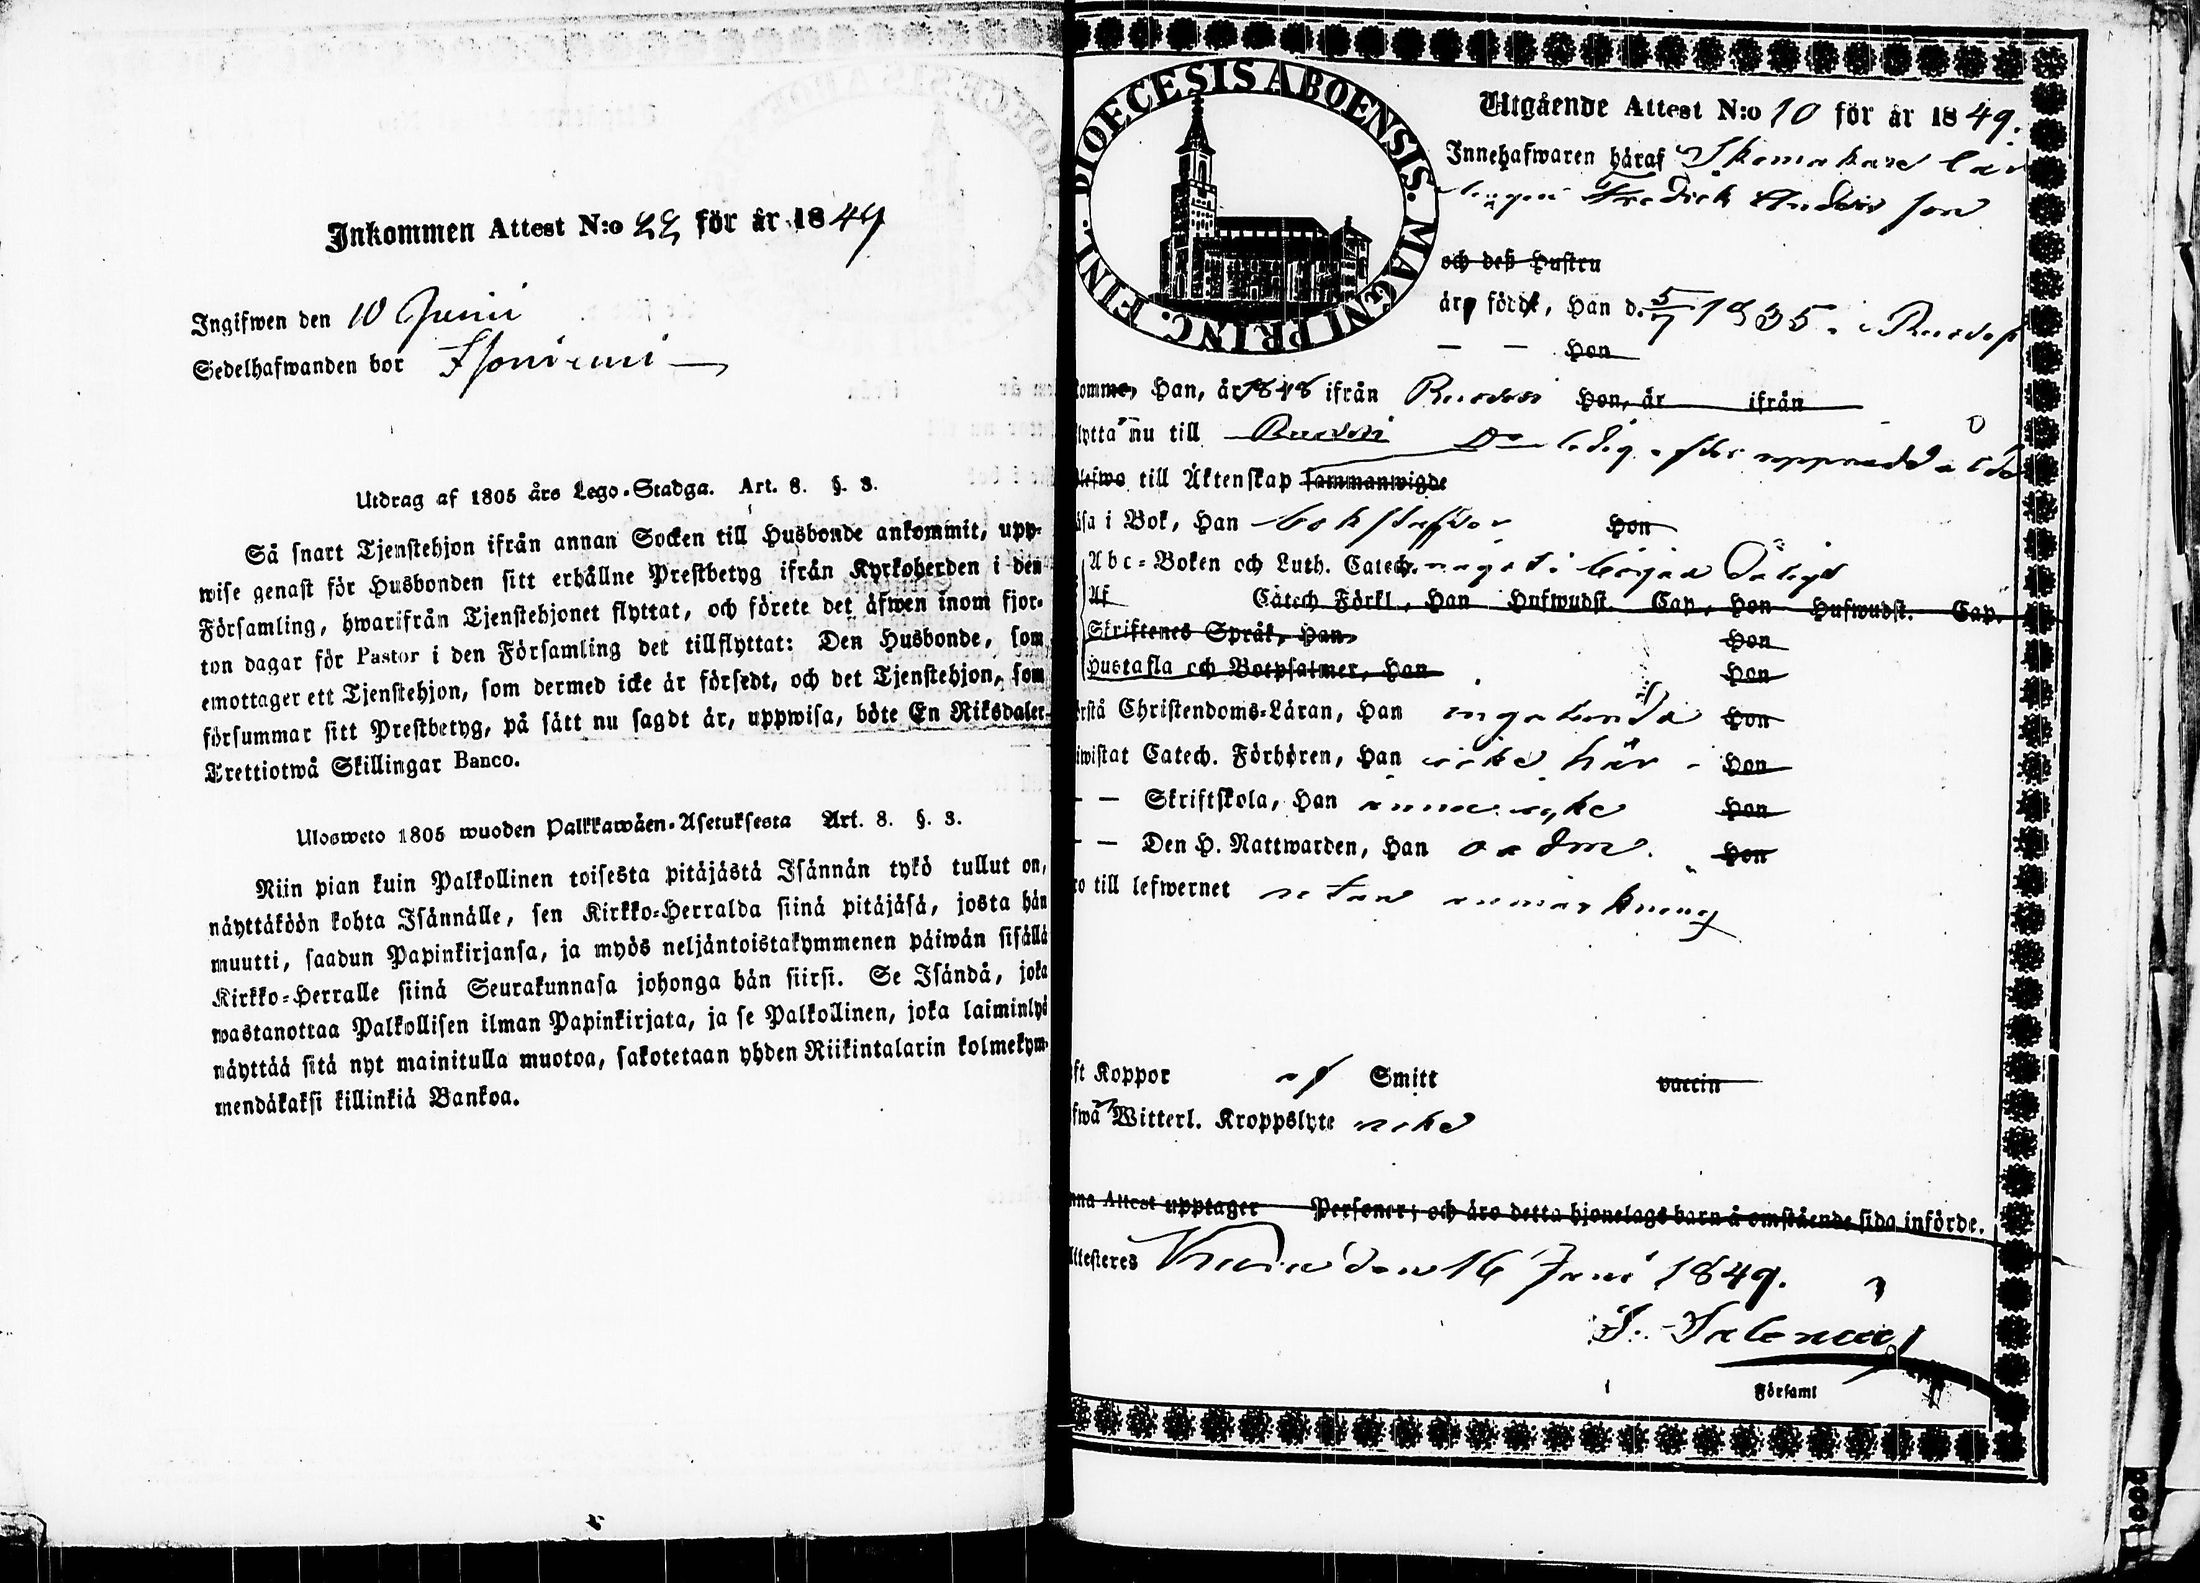 Inkommen Attest N:o 22 för år 1849
Ingifwen den 10 Junii
Sedelhafwanden bor
Utdrag af 1805 års Lego-Stadga. Art. 8. §. 3.
Så snart Tjenstehjon ifrån annan Socken till Husbonde ankommit, upp-
wise genast för Husbonden sitt erhållne Prestbetyg ifrån Kyrkoherden i den
Församling, hwarifrån Tjenstehjonet flyttat, och förete det äfwen inom fjor-
ton dagar för Pastor i den Församling det tillflyttat: Den Husbonde, som
emottager ett Tjenstehjon, som dermed icke är försedt, och det Tjenstehjon, som
försummar sitt Prestbetyg, på sätt nu sagdt är, uppwisa, böte En Riksdaler
Trettiotwå Skillingar Banco.
Ulosweto 1805 wuoden Palkkawäen-Asetuksesta Art. 8. §. 3.
Niin pian kuin Palkollinen toisesta pitäjästä Isännän tykö tullut on,
näyttäköön kohta Isännälle, sen Kirkko-Herralda siinä pitäjäsä, josta hän
muutti, saadun Papinkirjansa, ja myös neljäntoistakymmenen päiwän sisällä
Kirkko-Herralle siinä Seurakunnasa johonga hän siirsi. Se Isändä, joka
wastanottaa Palkollisen ilman Papinkirjata, ja se Palkollinen, joka laiminlyö
näyttää sitä nyt mainitulla muotoa, sakotetaan yhden Riikintalarin kolmekym-
mendäkaksi killinkiä Bankoa.
DIOECESIS ABOENSIS. MAGNI PRINC. FINL.
Utgående Attest N:o 10 för år 1849.
Innehafwaren häraf Skomakare lär
lingen Fredrik Anders son
och deß Hustru
är född, Han d. 5/7 1835. i Rusko
— — Hon
komme, Han, år 1848 ifrån Rusko Hon, år ifrån
flytta nu till Rusko ledig
lefwo till Äktenskap sammanwigde
läsa i Bok, Han bokstafvar Hon
Abc-Boken och Luth. Catech. något i början
Af Catech Förkl, Han Hufwudst. Cap, Hon Hufwudst. Cap.
Skriftenes Språk, Han Hon
Hustafla och Botpsalmer, Han Hon
erstå Christendoms-Läran, Han Hon
iwistat Catech. Förhören, Han icke här Hon
— — Skriftskola, Han ännu icke Hon
— — Den H. Nattwarden, Han oadm. Hon
ro till lefwernet utan anmärkning
ft Koppor af Smitt vaccin
fwa Witterl. Kroppslyte icke
nna Attest upptager Personer; och äro detta hjonelags barn å omstående sida införde.
Attesteres den 16 Juni 1849.
Församl